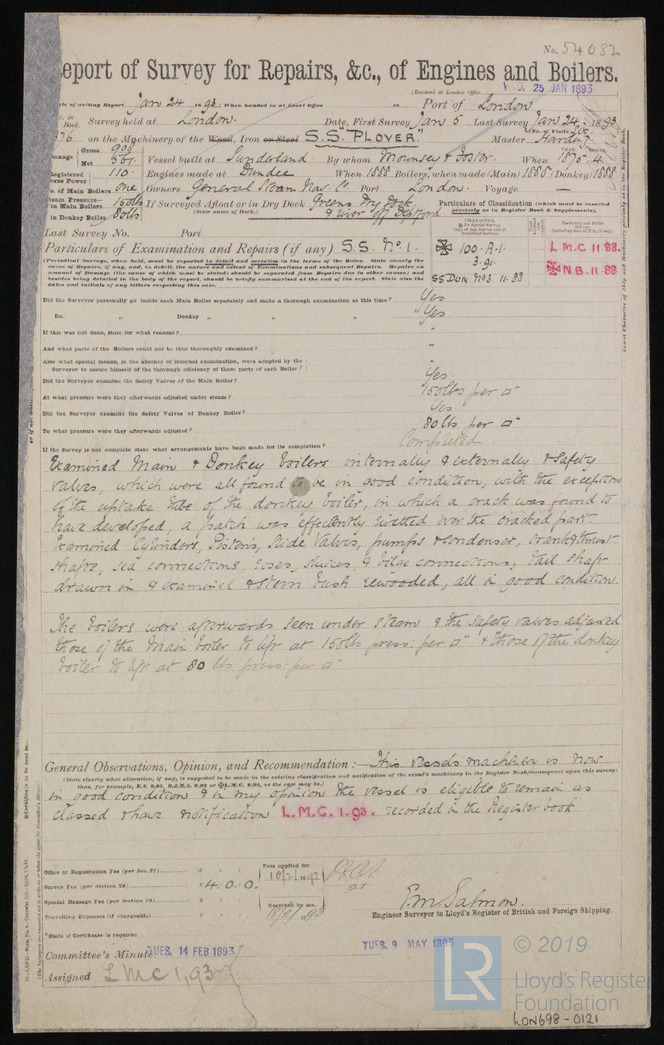 No. 54082
Report of Survey for Repairs, &c., of Engines and Boilers.
(Received at London Office WED. 25 JAN 1893
Date of writing Report Jan 24 1893. When handed in at Local Office 18 Port of London
Survey held at London. Date, First Survey Jan 5 Last Survey Jan 24 1893
on the Machinery of the Wood, Iron or Steel S.S. "PLOVER" Master Harding
Gross 993
Net 501
Vessel built at Sunderland By whom Mounsey & Foster When 1875-4
Registered Horse Power 110 Engines made at Dundee When 1888 Boilers, when made (Main) 1888 (Donkey) 1888
No. of Main Boilers One Owners General Steam Nav. Co Port London. Voyage —
Steam Pressure in Main Boilers 150lbs If Surveyed Afloat or in Dry Dock Greens Dry Dock
in Donkey Boiler 80lbs (State name of Dock.) & River off Deptford
Particulars of Classification (which must be inserted precisely as in Register Book & Supplements).
Last Survey No. Port
Particulars of Examination and Repairs (if any) S.S. No. 1.
100.A.1.
3.91.
SS DUN No3 11.88
L.M.C 11.88.
N.B. 11.88
(Periodical Surveys, when held, must be reported in detail and seriatim in the terms of the Rules. State clearly the cause of Repairs, if any, and, in detail, the nature and extent of Examinations and subsequent Repairs.
Did the Surveyor personally go inside each Main Boiler separately and make a thorough examination at this time? Yes
Do. " Donkey " " " Yes
If this was not done, state for what reasons? -
And what parts of the Boilers could not be thus thoroughly examined? -
Also what special means, in the absence of internal examination, were adopted by the Surveyor to assure himself of the thorough efficiency of those parts of each Boiler? -
Did the Surveyor examine the Safety Valves of the Main Boiler? Yes.
At what pressure were they afterwards adjusted under steam? 150lbs per □"
Did the Surveyor examine the Safety Valves of Donkey Boiler? Yes.
To what pressure were they afterwards adjusted? 80 lbs per □"
If the Survey is not complete state what arrangements have been made for its completion? Completed.
Examined Main & Donkey boilers internally & externally, & Safety
valves, which were all found to be in good condition, with the exception
of the uptake tube of the donkey boiler, in which a crack was found to
have developed, a patch was efficiently rivetted over the cracked part.
Examined Cylinders, Pistons, Slide Valves, pumps & Condenser, Crank & thrust
shafts, sea connections, roses, sluices, & bilge connections; tail shaft
drawn in & examined & stern bush rewooded, all in good condition.
The boilers were afterwards seen under steam & the safety valves adjusted
those of the Main boiler to lift at 150lbs press: per □" & those of the donkey
boiler to lift at 80 lbs press: per □"
General Observations, Opinion, and Recommendation:— This vessels machinery is now
(State clearly what alteration, if any, is suggested to be made in the existing classification and notification of the vessel's machinery in the Register Book, consequent upon this survey;
in good condition & in my opinion the vessel is eligible to remain as
classed & have notification L.M.C. 1.93. recorded in the Register book.
Office or Registration Fee (per Sec. 27)
Survey Fee (per Section 28) 4.0.0.
Special Damage Fee (per Section 28)
Travelling Expenses (if chargeable)
Fees applied for
Received by me,
F. M. Salmon.
Engineer Surveyor to Lloyd's Register of British and Foreign Shipping.
*State if Certificate is required
Committee's Minute TUES. 14 FEB 1893 TUES. 9 MAY 1893
Assigned LMC 1,93
LR
© 2019
Lloyd's Register
Foundation
LON698-0121